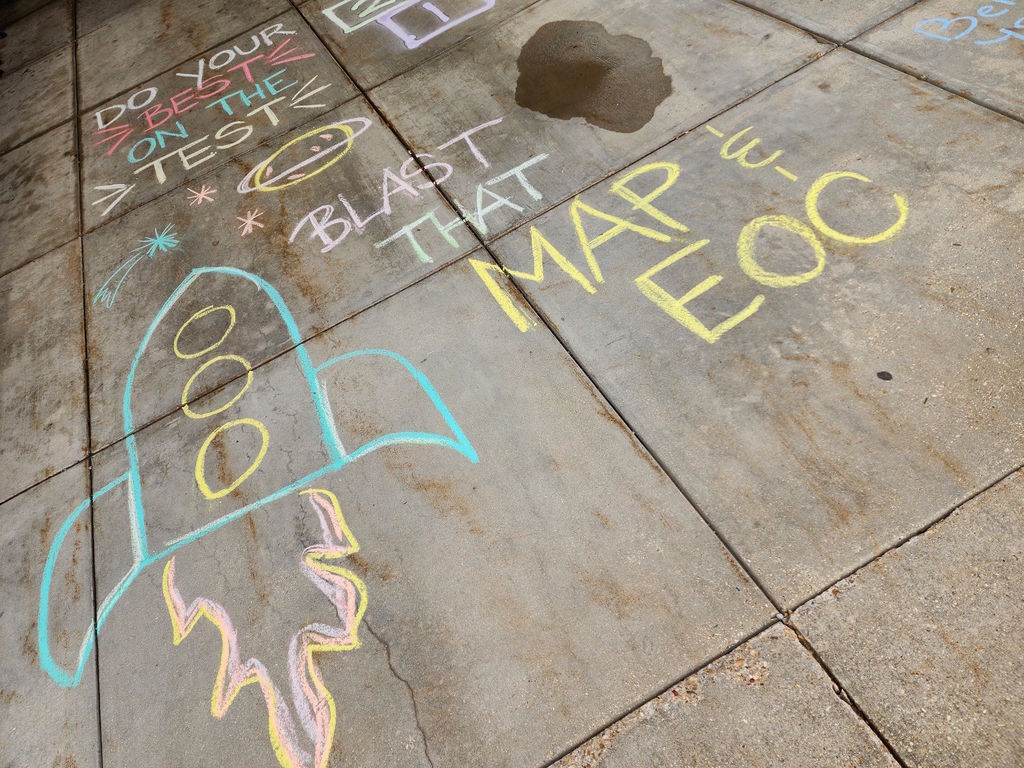 DO YOUR
BEST
ON THE
TEST
BLAST
THAT
MAP
&
EOC
2
1
Be